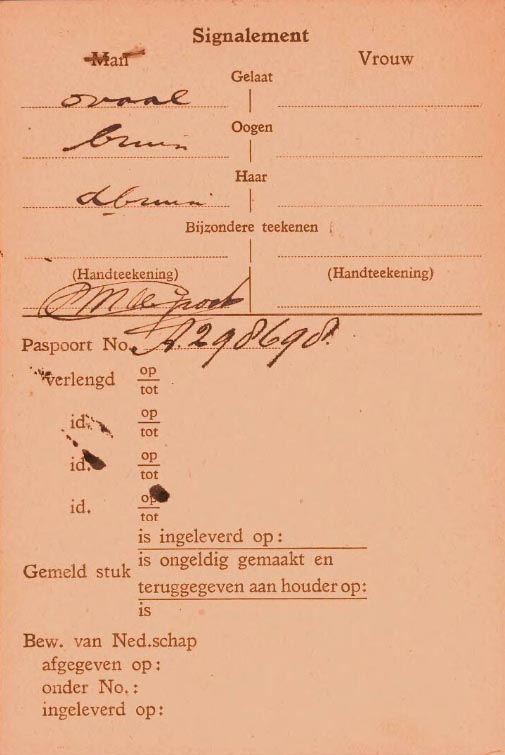 Signalement
Man Vrouw
Gelaat
ovaal
Oogen
bruin
Haar
dbruin
Bijzondere teekenen
(Handteekening) (Handteekening)
Paspoort No. A.298698.
verlengd op
tot
id. op
tot
id. op
tot
id. op
tot
is ingeleverd op:
Gemeld stuk is ongeldig gemaakt en
teruggegeven aan houder op:
is
Bew. van Ned.schap
afgegeven op:
onder No.:
ingeleverd op: